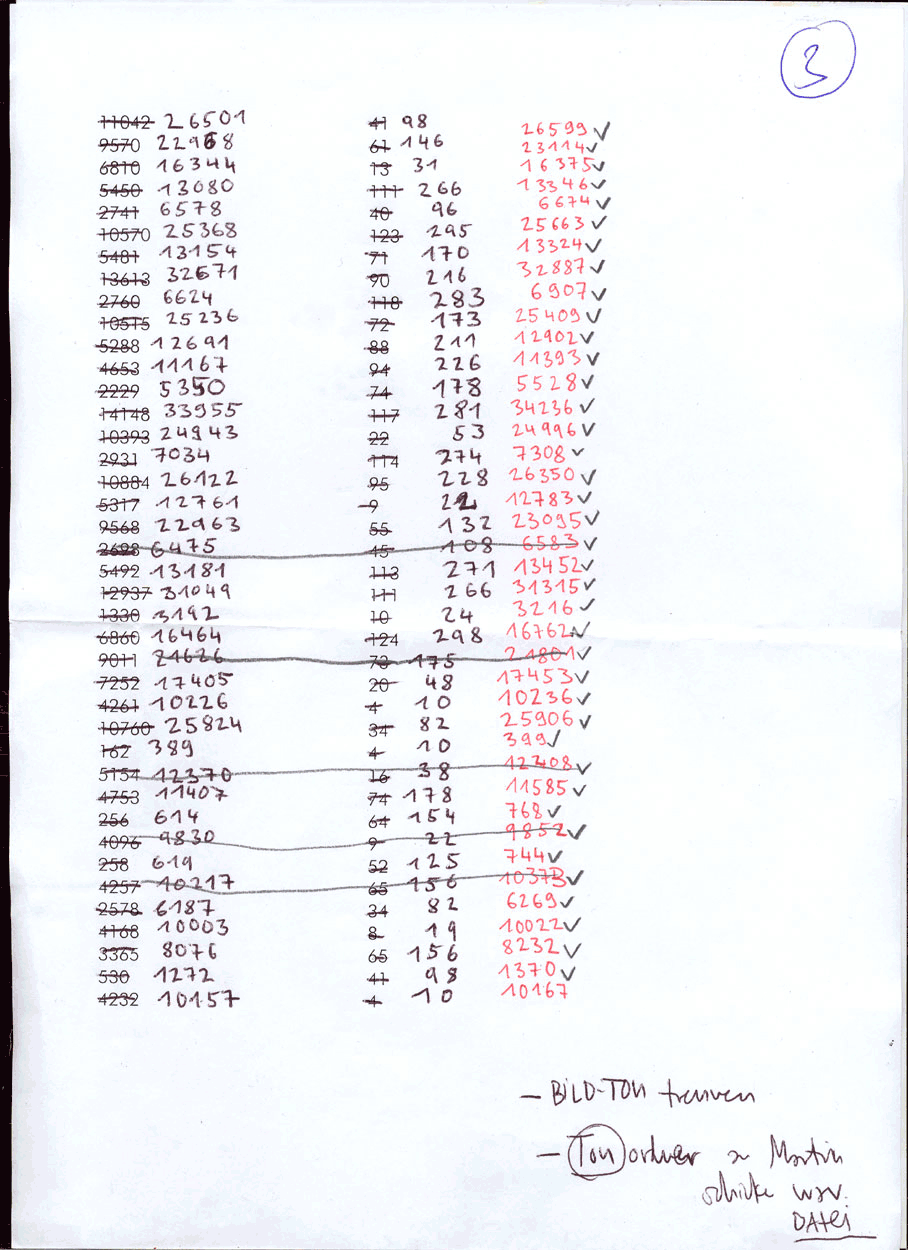 3
11042 26501 41 98 26599 ✓
9570 22968 61 146 23114 ✓
6810 16344 13 31 16375 ✓
5450 13080 111 266 13346 ✓
2741 6578 40 96 6674 ✓
10570 25368 123 295 25663 ✓
5481 13154 71 170 13324 ✓
13613 32671 90 216 32887 ✓
2760 6624 118 283 6907 ✓
10515 25236 72 173 25409 ✓
5288 12691 88 211 12902 ✓
4653 11167 94 226 11393 ✓
2229 5350 74 178 5528 ✓
14148 33955 117 281 34236 ✓
10393 24943 22 53 24996 ✓
2931 7034 114 274 7308 ✓
10884 26122 95 228 26350 ✓
5317 12761 9 22 12783 ✓
9568 22963 55 132 23095 ✓
2698 6475 45 108 6583 ✓
5492 13181 113 271 13452 ✓
12937 31049 111 266 31315 ✓
1330 3192 10 24 3216 ✓
6860 16464 124 298 16762 ✓
9011 21626 73 175 21801 ✓
7252 17405 20 48 17453 ✓
4261 10226 4 10 10236 ✓
10760 25824 34 82 25906 ✓
162 389 4 10 399 ✓
5154 12370 16 38 12408 ✓
4753 11407 74 178 11585 ✓
256 614 64 154 768 ✓
4096 9830 9 22 9852 ✓
258 619 52 125 744 ✓
4257 10217 65 156 10373 ✓
2578 6187 34 82 6269 ✓
4168 10003 8 19 10022 ✓
3365 8076 65 156 8232 ✓
530 1272 41 98 1370 ✓
4232 10157 4 10 10167
– BILD-TON trennen
– Ton ordner an Martin
schicke wav.
DATEI